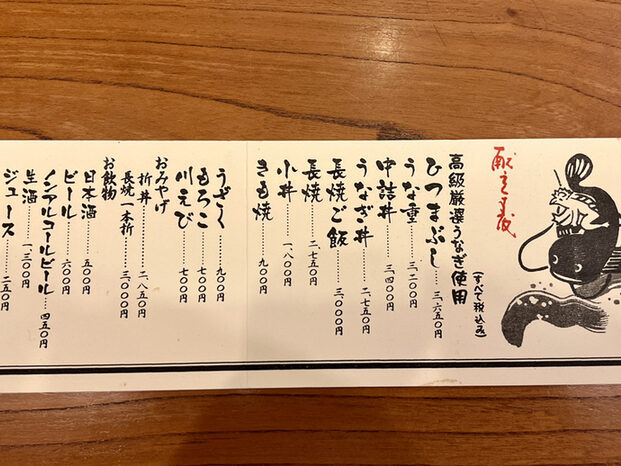 献立表
高級厳選うなぎ使用
(すべて税込み)
ひつまぶし……三、六五〇円
うな重……三、二〇〇円
中詰丼……三、四〇〇円
うなぎ丼……二、七五〇円
長焼ご飯……三、〇〇〇円
長焼……二、七五〇円
小丼……一、八〇〇円
きも焼……九〇〇円
うざく……九〇〇円
もろこ……七〇〇円
川えび……七〇〇円
おみやげ
折丼……二、八五〇円
長焼一本折……三、〇〇〇円
お飲物
日本酒……五〇〇円
ビール……六〇〇円
ノンアルコールビール……四五〇円
生酒……一、三〇〇円
ジュース……二五〇円